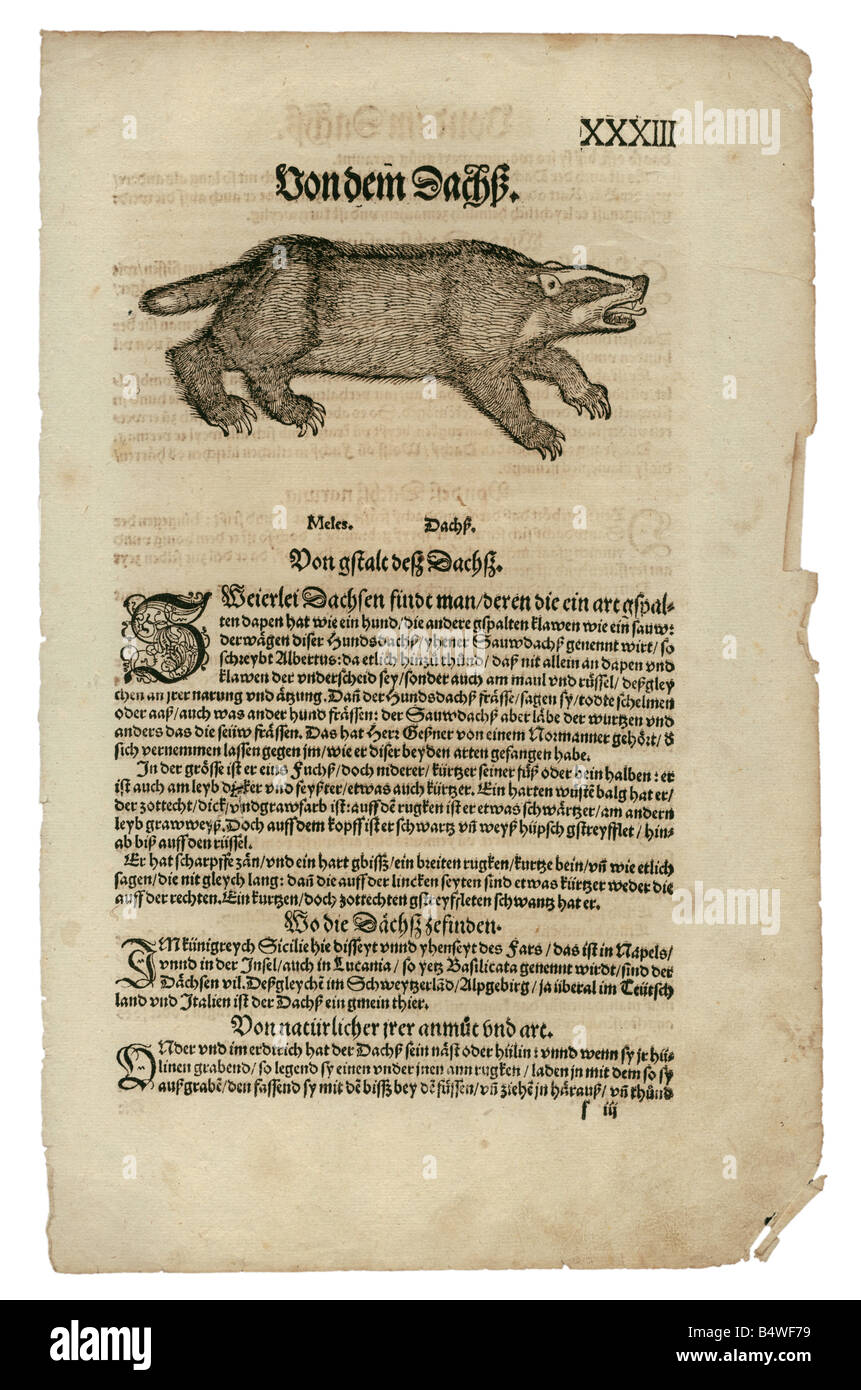 XXXIII
Von dem Dachß.
Meles. Dachß.
Von gstalt deß Dachß.
ZWeierlei Dachsen findt man/deren die ein art gspal-
ten dapen hat wie ein hund/die andere gspalten klawen wie ein sauw:
derwägen diser Hundsdachß/yhener Sauwdachß genennt wirt/so
schreybt Albertus: da etlich hinzů thůnd/daß nit allein an dapen vnd
klawen der vnderscheid sey/sonder auch am maul vnd rüssel/deßgley
chen an jrer narung vnd ätzung. Dañ der Hundsdachß frässe/sagen sy/todte schelmen
oder aaß/auch was ander hund frässen: der Sauwdachß aber läbe der wurtzen vnd
anders das die seüw frässen. Das hat Herr Geßner von einem Normanner gehört/d
sich vernemmen lassen gegen jm/wie er diser beyden arten gefangen habe.
In der grösse ist er eins Fuchß/doch niderer/kürtzer seiner füß oder bein halben: er
ist auch am leyb dicker vnd feyßter/etwas auch kürtzer. Ein harten wüstẽ balg hat er/
der zottecht/dick/vnd grawfarb ist: auff dẽ rugken ist er etwas schwärtzer/am andern
leyb grawweyß. Doch auff dem kopff ist er schwartz vñ weyß hüpsch gstreyfflet/hin-
ab biß auff den rüssel.
Er hat scharpffe zän/vnd ein hart gbissz/ein breiten rugken/kurtze bein/vñ wie etlich
sagen/die nit gleych lang: dañ die auff der lincken seyten sind etwas kürtzer weder die
auff der rechten. Ein kurtzen/doch zottechten gstreyffleten schwantz hat er.
Wo die Dächß zefinden.
IM künigreych Sicilie hie disseyt vnnd yhenseyt des Fars/das ist in Napels/
vnnd in der Insel/auch in Lucania/so yetz Basilicata genennt wirdt/sind der
Dächsen vil. Deßgleychẽ im Schweytzerlãd/Alpgebirg/ja überal im Teütsch
land vnd Italien ist der Dachß ein gmein thier.
Von natürlicher jrer anmůt vnd art.
VNder vnd im erdtrich hat der Dachß sein näst oder hülin: vnnd wenn sy jr hü-
linen grabend/so legend sy einen vnder jnen ann rugken/laden jn mit dem so sy
außgrabẽ/den fassend sy mit dẽ bissz bey dẽ füssen/vñ ziehẽ jn härauß/vñ thůnd
f iij
alamy
Image ID: B4WF79
www.alamy.com